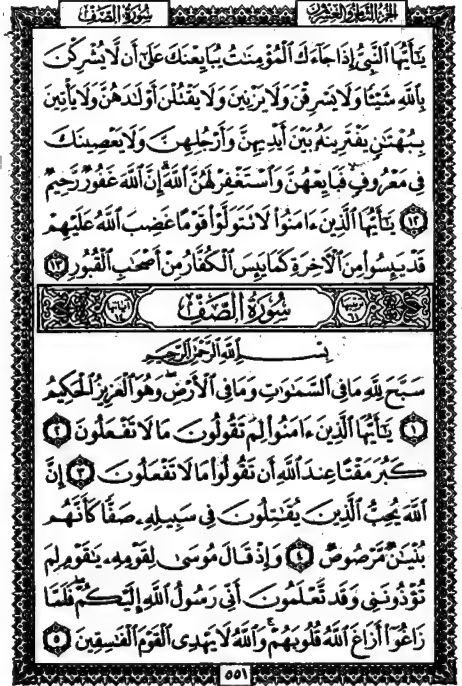 سُورَةُ الصَّفِّ الجُزْءُ الثَّامِنُ وَالعِشْرُونَ
يَٰٓأَيُّهَا ٱلنَّبِيُّ إِذَا جَآءَكَ ٱلْمُؤْمِنَٰتُ يُبَايِعْنَكَ عَلَىٰٓ أَن لَّا يُشْرِكْنَ
بِٱللَّهِ شَيْـًٔا وَلَا يَسْرِقْنَ وَلَا يَزْنِينَ وَلَا يَقْتُلْنَ أَوْلَٰدَهُنَّ وَلَا يَأْتِينَ
بِبُهْتَٰنٍ يَفْتَرِينَهُۥ بَيْنَ أَيْدِيهِنَّ وَأَرْجُلِهِنَّ وَلَا يَعْصِينَكَ
فِي مَعْرُوفٍ فَبَايِعْهُنَّ وَٱسْتَغْفِرْ لَهُنَّ ٱللَّهَ إِنَّ ٱللَّهَ غَفُورٌ رَّحِيمٌ
١٢ يَٰٓأَيُّهَا ٱلَّذِينَ ءَامَنُوا۟ لَا تَتَوَلَّوْا۟ قَوْمًا غَضِبَ ٱللَّهُ عَلَيْهِمْ
قَدْ يَئِسُوا۟ مِنَ ٱلْأَخِرَةِ كَمَا يَئِسَ ٱلْكُفَّارُ مِنْ أَصْحَٰبِ ٱلْقُبُورِ ١٣
ترتيبها ٦١ سُورَةُ الصَّفِّ آياتها ١٤
بِسْمِ ٱللَّهِ ٱلرَّحْمَٰنِ ٱلرَّحِيمِ
سَبَّحَ لِلَّهِ مَا فِي ٱلسَّمَٰوَٰتِ وَمَا فِي ٱلْأَرْضِ ۖ وَهُوَ ٱلْعَزِيزُ ٱلْحَكِيمُ
١ يَٰٓأَيُّهَا ٱلَّذِينَ ءَامَنُوا۟ لِمَ تَقُولُونَ مَا لَا تَفْعَلُونَ ٢
كَبُرَ مَقْتًا عِندَ ٱللَّهِ أَن تَقُولُوا۟ مَا لَا تَفْعَلُونَ ٣ إِنَّ
ٱللَّهَ يُحِبُّ ٱلَّذِينَ يُقَٰتِلُونَ فِي سَبِيلِهِۦ صَفًّا كَأَنَّهُم
بُنْيَٰنٌ مَّرْصُوصٌ ٤ وَإِذْ قَالَ مُوسَىٰ لِقَوْمِهِۦ يَٰقَوْمِ لِمَ
تُؤْذُونَنِي وَقَد تَّعْلَمُونَ أَنِّي رَسُولُ ٱللَّهِ إِلَيْكُمْ ۖ فَلَمَّا
زَاغُوٓا۟ أَزَاغَ ٱللَّهُ قُلُوبَهُمْ ۚ وَٱللَّهُ لَا يَهْدِي ٱلْقَوْمَ ٱلْفَٰسِقِينَ ٥
٥٥١